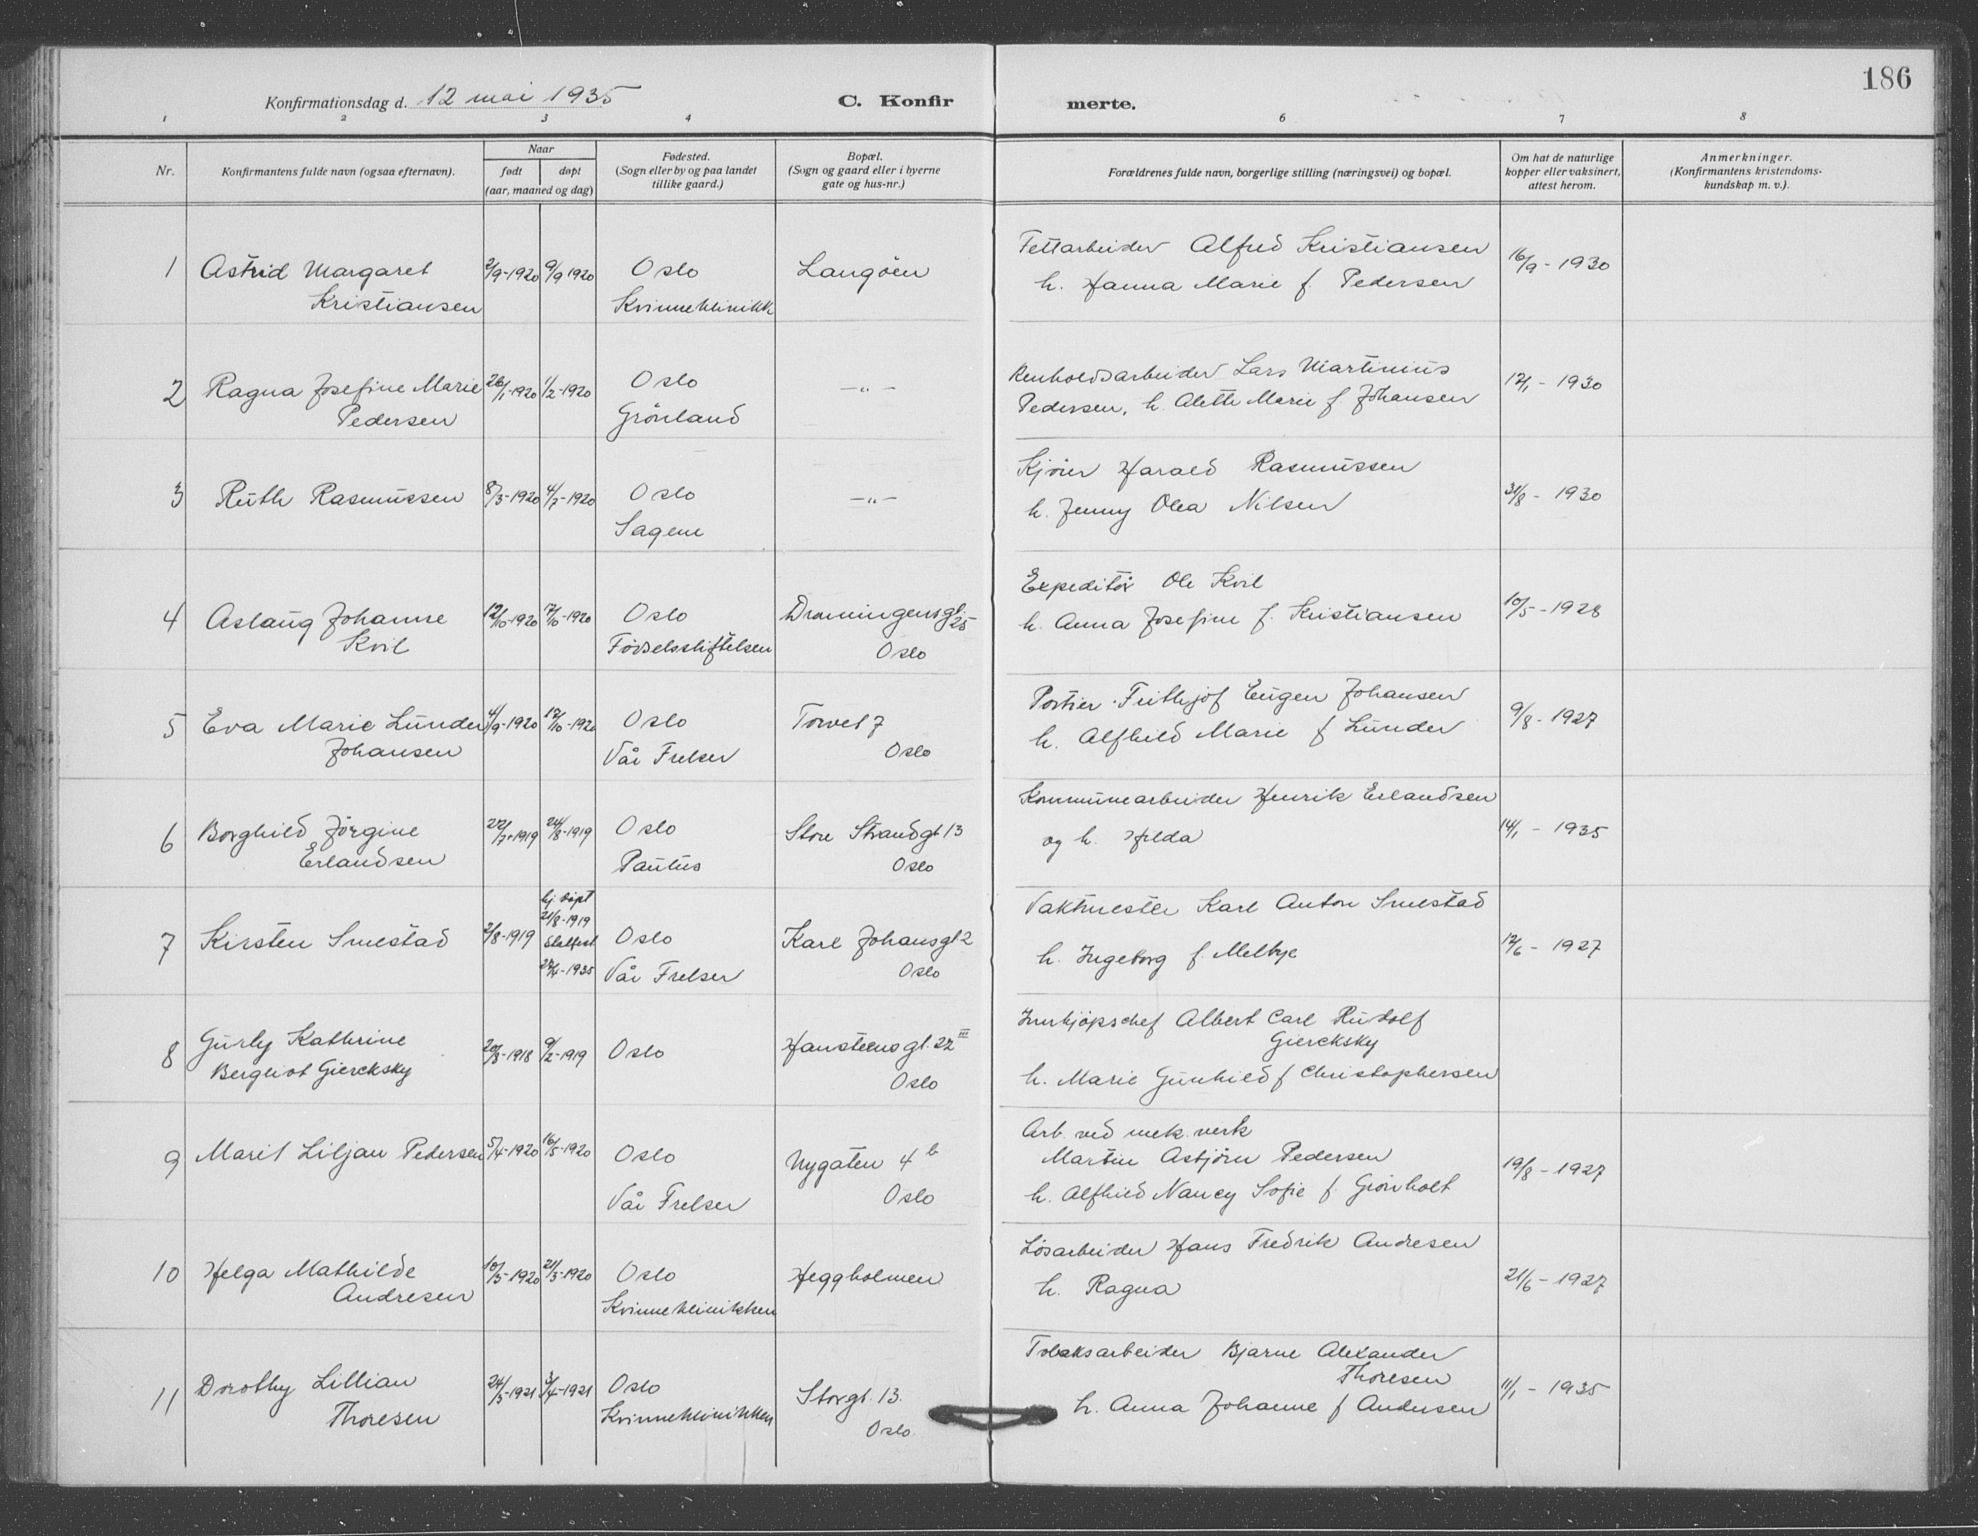 186
Konfirmationsdag d. 12 mai 1935 C. Konfirmerte.
1 2 3 4 6 7 8
Nr. Konfirmantens fulde navn (ogsaa efternavn). Naar født døpt (aar, maaned og dag) Fødested. (Sogn eller by og paa landet tillike gaard.) Bopæl. (Sogn og gaard eller i byerne gate og hus-nr.) Forældrenes fulde navn, borgerlige stilling (næringsvei) og bopæl. Om hat de naturlige kopper eller vaksinert, attest herom. Anmerkninger. (Konfirmantens kristendomskundskap m. v.).
1 Astrid Margaret 2/9-1920 9/9 1920 Oslo Langöen Fettarbeider Alfred Kristiansen 16/9-1930
Kristiansen Kvinneklinikk h. Hanna Marie f. Pedersen
2 Ragna Josefine Marie 26/1-1920 1/2-1920 Oslo -"- Renholdsarbeider Lars Martinius 12/1-1930
Pedersen Grönland Pedersen, h. Alette Marie f. Johansen
3 Ruth Rasmussen 8/3-1920 4/7-1920 Oslo -"- Kjörer Harald Rasmussen 31/8-1930
Sagene h. Jenny Olea Nilsen
4 Aslaug Johanne 12/10-1920 7/10-1920 Oslo Dronningensgt. 25 Expeditör Ole Kvil 10/5-1928
Kvil Födselsstiftelsen Oslo h. Anna Josefine f. Kristiansen
5 Eva Marie Lunder 4/9-1920 17/10-1920 Oslo Torvet 7 Portier Frithjof Eugen Johansen 9/8-1927
Johansen Vår Frelser Oslo h. Alfhild Marie f Lunder
6 Borghild Jörgine 22/7-1919 24/8-1919 Oslo Store Strandgt 13 Kommunearbeider Henrik Erlandsen 14/1-1935
Erlandsen Paulus Oslo og h. Hilda
7 Kirsten Smestad 2/8-1919 hj. döpt 21/8-1919 Stadfest 22/4-1935 Oslo Karl Johansgt 2 Vaktmester Karl Anton Smestad 12/6-1927
Vår Frelser Oslo h. Ingeborg f. Melbye
8 Gurly Kathrine 20/8-1918 9/2-1919 Oslo Hansteensgt. 22 III Innkjöpschef Albert Carl Rudolf
Bergliot Giercksky Oslo Giercksky
h. Marie Gunhild f Christophersen
9 Marit Liljan Pedersen 5/4-1920 16/5-1920 Oslo Nygaten 4 b Arb. ved mek. verk
Martin Asbjörn Pedersen 19/8-1927
Vår Frelser Oslo h. Alfhild Nancy Sofie f. Grönholt
10 Helga Mathilde 10/3-1920 21/3-1920 Oslo Heggholmen Lösarbeider Hans Fredrik Andresen 21/6-1927
Andresen Kvinneklinikken h. Ragna
11 Dorothy Lillian 24/3-1921 3/4-1921 Oslo Storgt. 13. Tobaksarbeider Bjarne Alexander 11/1-1935
Thoresen Kvinneklinikken Oslo Thoresen
h. Anna Johanne f Andersen